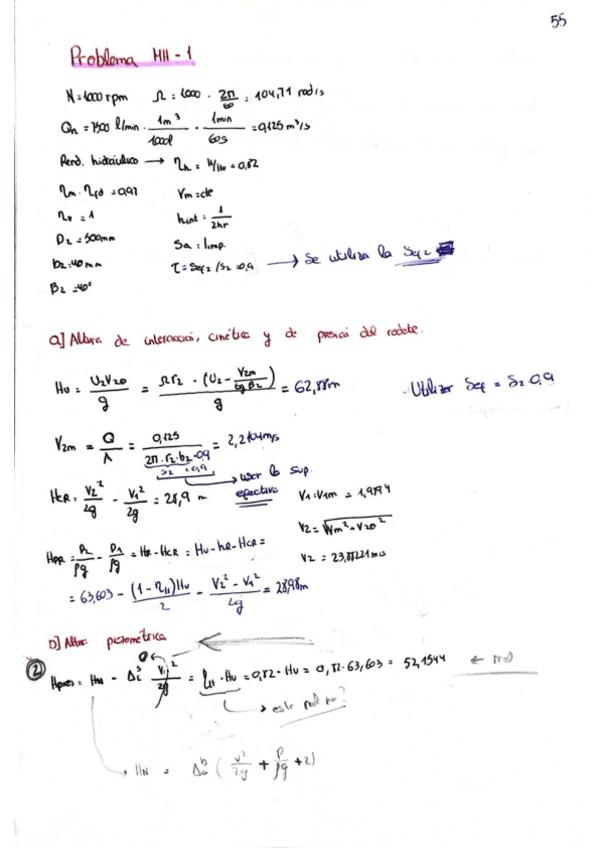 55
Problema MH-1
N=1000 rpm   Ω = 1000 · 2π/60 = 104,71 rad/s
Qn = 7500 l/min · 1m³/1000l · 1min/60s = 0,125 m³/s
Rend. hidráulico → ηh = H/Hu = 0,82
ηm·ηrd = 0,97   Vm = cte
ηv = 1   hint = 1/2hr
D2 = 500mm   Sa = limp.
b2 = 40mm   τ = Sef2/S2 = 0,9 → Se utiliza la Sef2
β2 = 40°
a] Altura de interacción, cinética y de presión del rodete.
Hu = U2V2θ/g = Ωr2 · (U2 - V2m/tgβ2)/g = 62,88m   · Utilizar Sef = S2·0,9
V2m = Q/A = 0,125/(2π·r2·b2·0,9) = 2,2104m/s
S2 · 0,9 → usar la sup. efectiva
HCR = V2²/2g - V1²/2g = 28,9 m   V1=V1m = 1,9894
V2 = √(Vm²+V2θ²)
HPR = P2/ρg - P1/ρg = HR-HCR = Hu-hR-HCR =   V2 = 23,87221 m/s
= 63,603 - (1-ηH)Hu/2 - (V2²-V1²)/2g = 28,98m
b] Altura piezométrica
② Hpiez = HN - Δ V²/2g = ηH · Hu = 0,82 · Hu = 0,82 · 63,603 = 52,1544 ←
0
→ este
→ HN = Δ (V²/2g + P/ρg + z)